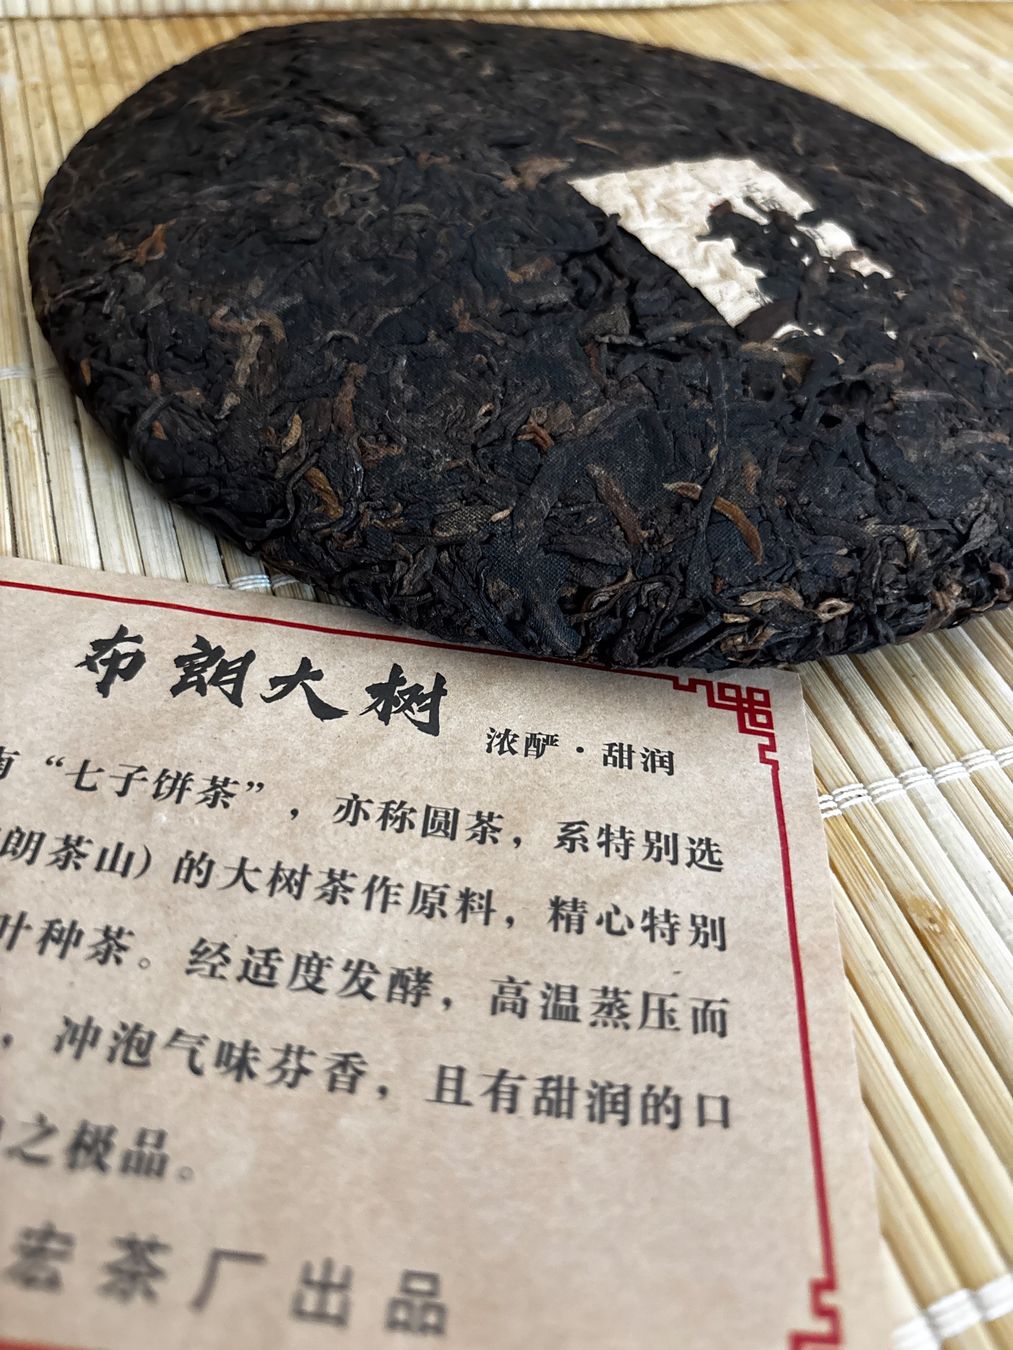 布朗大树
浓酽·甜润
南“七子饼茶”，亦称圆茶，系特别选
朗茶山）的大树茶作原料，精心特别
叶种茶。经适度发酵，高温蒸压而
，冲泡气味芬香，且有甜润的口
之极品。
宏茶厂出品